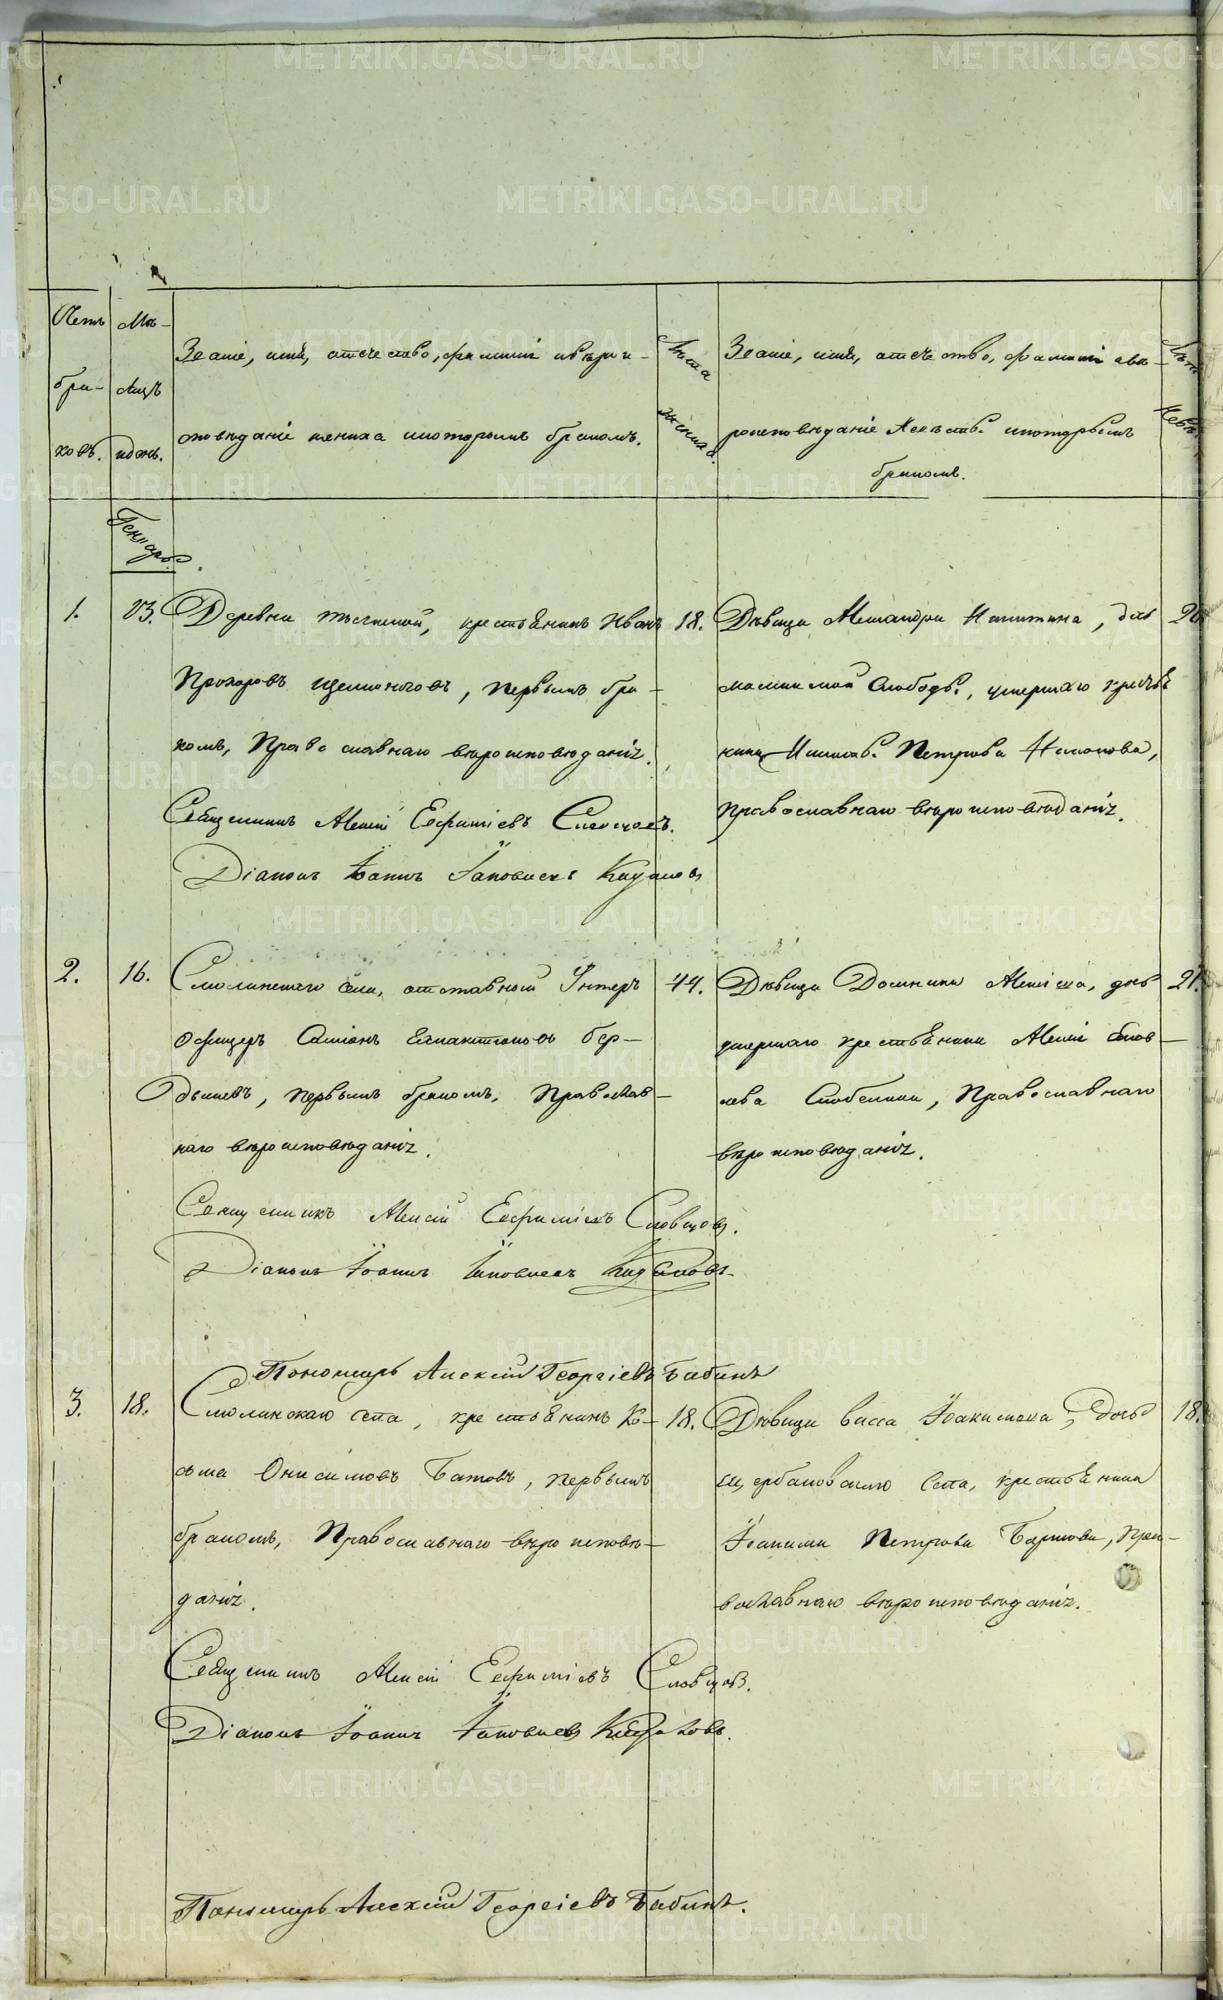 METRIKI.GASO-URAL.RU
Счетъ браковъ.
Мѣсяцъ и день.
Званіе, имя, отчество, фамилія и вѣроисповѣданіе жениха и которымъ бракомъ.
Лѣта жениха.
Званіе, имя, отчество, фамилія и вѣроисповѣданіе невѣсты и которымъ бракомъ.
Лѣта невѣ
Генваръ.
1.
13.
Деревни крестьянинъ Иванъ
Прохоровъ первымъ бра-
комъ, Православнаго вѣроисповѣданія.
Священникъ Алексій Евфиміевъ Словцовъ.
Діаконъ Іоаннъ Іаковлевъ Кидаловъ
18.
Дѣвица Александра Никитина, дочь
Слободы, умершаго крестья
нина Никиты Петрова
Православнаго вѣроисповѣданія.
20
2.
16.
Смолинскаго села, отставной Унтеръ
Офицеръ Симіонъ Бер-
дышевъ, первымъ бракомъ, Православ-
наго вѣроисповѣданія.
Священникъ Алексій Евфиміевъ Словцовъ.
Діаконъ Іоаннъ Іаковлевъ Кидаловъ
44.
Дѣвица Домника Алексіева, дочь
умершаго крестьянина Алексія
Православнаго
вѣроисповѣданія.
21.
Пономарь Алексій Георгіевъ Бабинъ
3.
18.
Смолинскаго села, крестьянинъ Ко-
сьма Онисимовъ Батовъ, первымъ
бракомъ, Православнаго вѣроисповѣ-
данія.
Священникъ Алексій Евфиміевъ Словцовъ.
Діаконъ Іоаннъ Іаковлевъ Кидаловъ.
18.
Дѣвица Васса Іоакимова, дочь
Щербаковскаго села, крестьянина
Іоакима Петрова Пра-
вославнаго вѣроисповѣданія.
18.
Пономарь Алексій Георгіевъ Бабинъ.